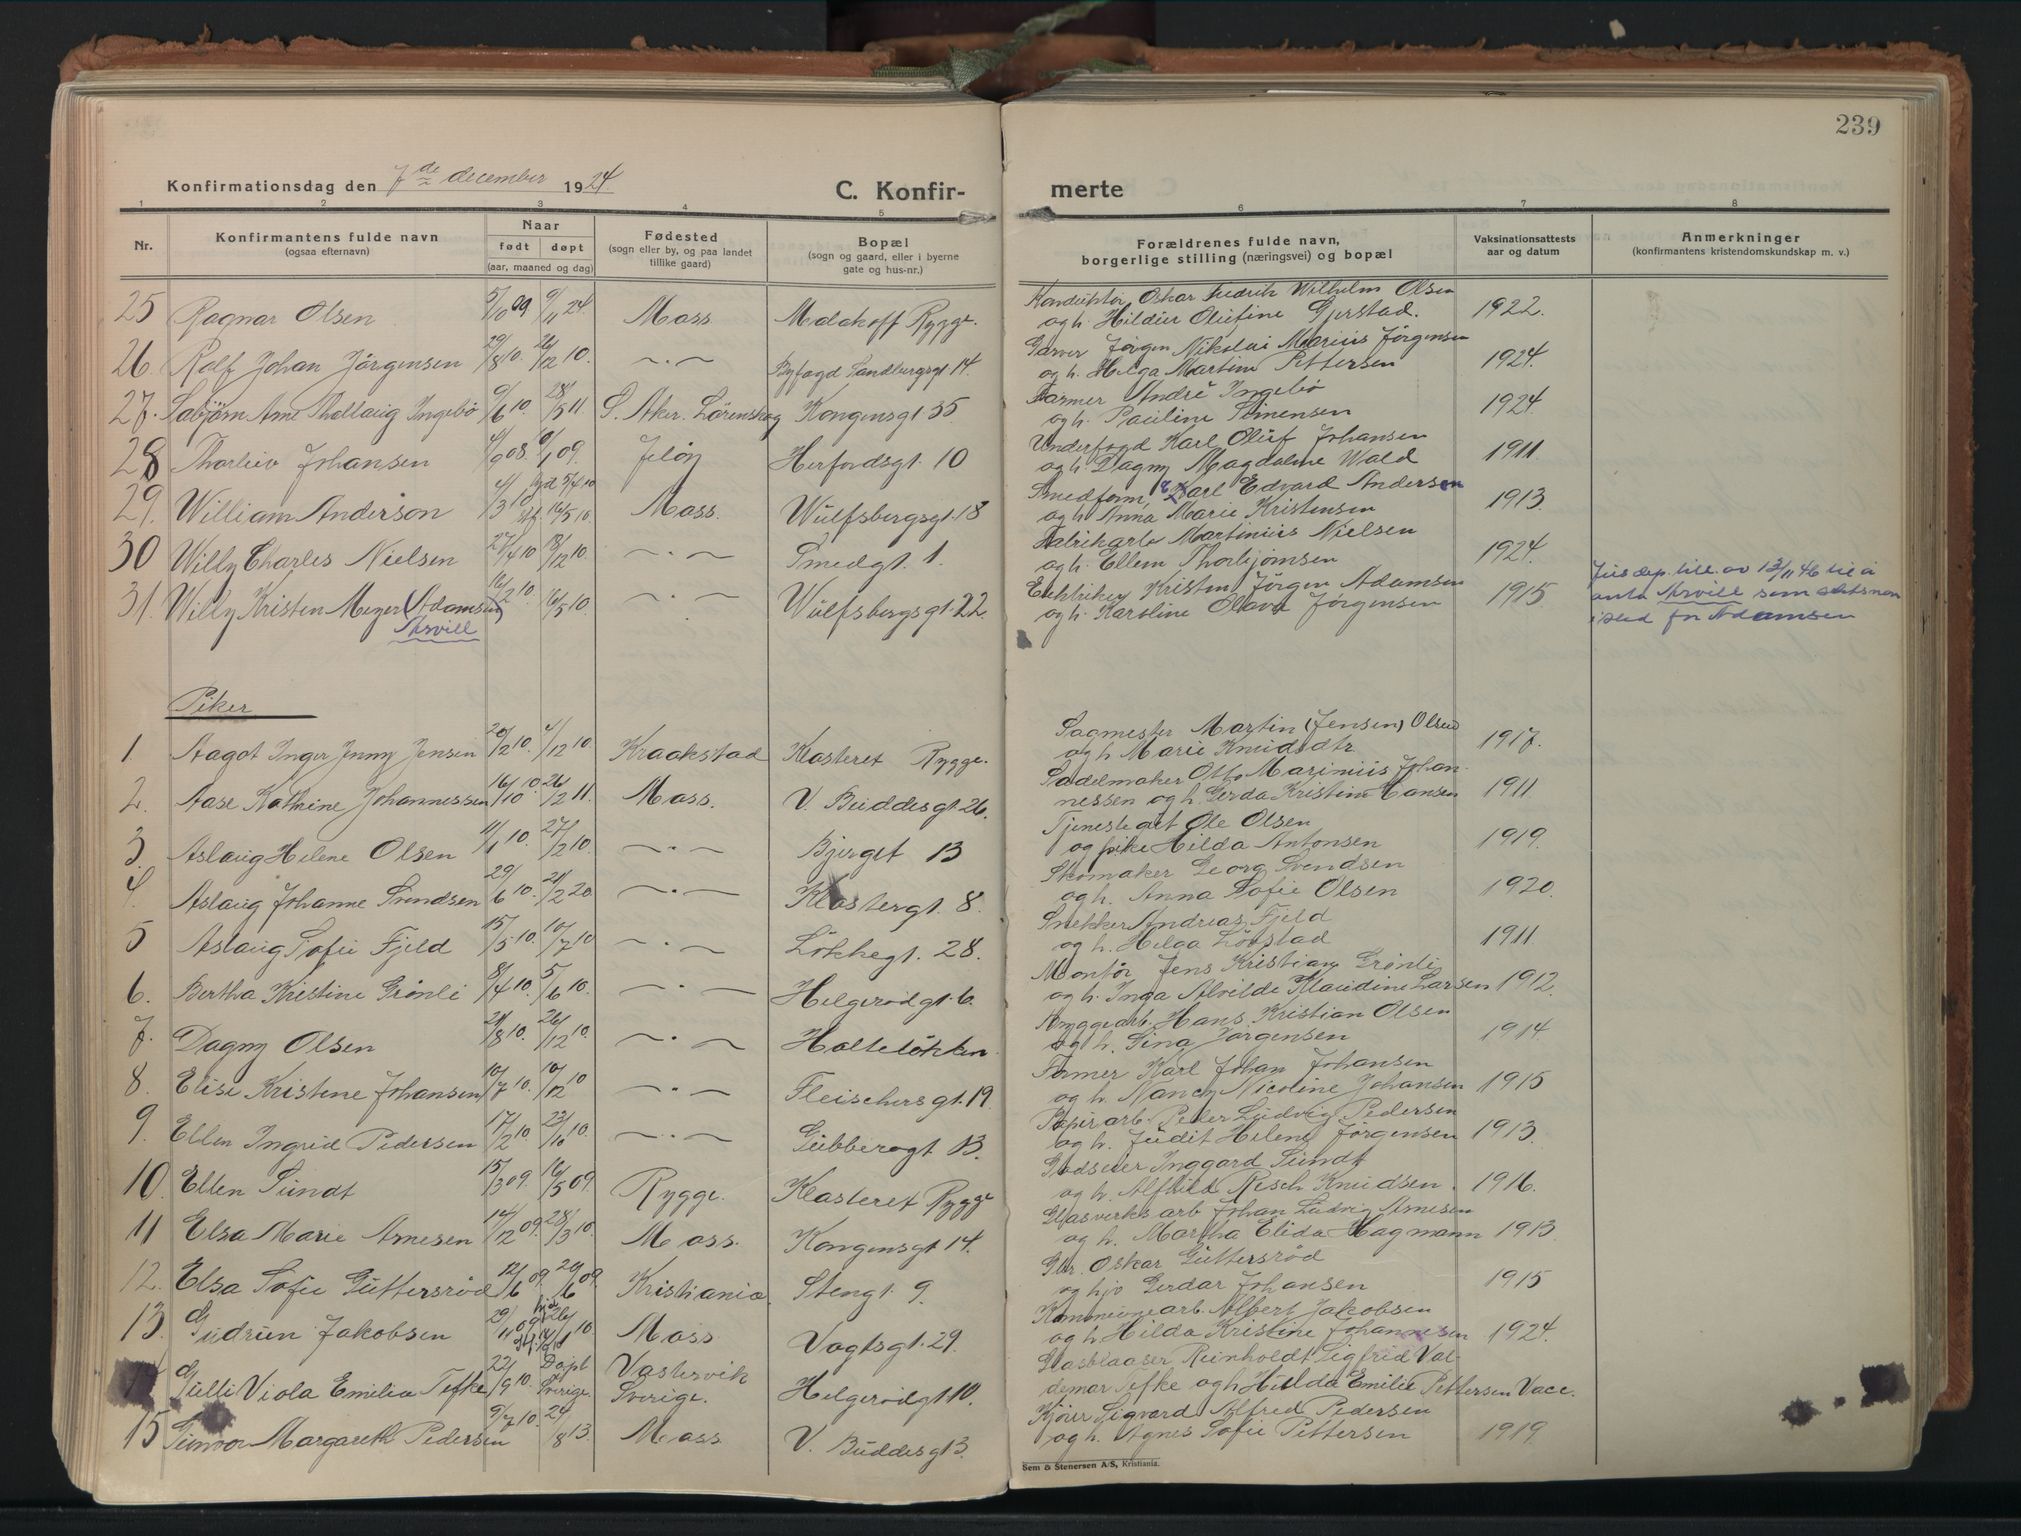 239
Konfirmationsdag den 7de december 1924.
C. Konfir-
merte
1 2 3 4 5 6 7 8
Nr.
Konfirmantens fulde navn
(ogsaa efternavn)
Naar
født døpt
(aar, maaned og dag)
Fødested
(sogn eller by, og paa landet
tillike gaard)
Bopæl
(sogn og gaard, eller i byerne
gate og hus-nr.)
Forældrenes fulde navn,
borgerlige stilling (næringsvei) og bopæl
Vaksinationsattests
aar og datum
Anmerkninger
(konfirmantens kristendomskundskap m. v.)
25 Ragnar Olsen 5/10 09 9/11 24. Moss Malakoff Rygge. Konduktør Oskar Fredrik Wilhelm Olsen
og h. Hildur Olufine Gjerstad. 1922.
26. Rolf Johan Jørgensen 29/8 10. 26/12 10. —〃— Byfogd Sandbergsgt 14. Garver Jørgen Nikolai Marius Jørgensen
og h. Helga Martine Pettersen 1924.
27. Arne Thollaug Ingebø 9/6 10. 28/5 11 Ø. Aker. Lørenskog Kongensgt 35 Farmer André Ingebø
og h. Pauline Simensen 1924.
28 Thorleiv Johansen 4/9 08. 10/1 09. Jeløy Herfordsgt. 10 Underfogd Karl Oluf Johansen
og h. Dagny Magdalene Wald 1911
29. William Anderson 4/3 10 hjd 5/4 10 stf. 16/5 10. Moss. Wulfsbergsgt. 18 Smedform. Karl Edvard Andersen
og h. Anna Marie Kristensen 1913.
30 Willy Charles Nielsen 27/4 10 18/12 10. —〃— Smedgt. 1. Fabrikarb. Martinius Nielsen
og h. Ellen Thorbjørnsen 1924.
31. Willy Kristen Meyer (Adamsen) 16/2 10. 16/5 10. —〃— Wulfsbergsgt. 22. Elektriker Kristen Jørgen Adamsen
og h. Karoline Olava Jørgensen 1915 Jusdep. till. av 13/11 46 til å
Arvill
anta Arvill som slektsnavn
i sted for Adamsen
Piker
1. Aagot Inger Jenny Jensen 20/2 10. 4/12 10. Kraakstad Klosteret Rygge. Sagmester Martin (Jensen) Olsen
og h. Marie Knudsdtr 1917.
2. Aase Kathrine Johannessen 16/10 10. 26/2 11. Moss. V. Buddesgt. 26. Sadelmaker Otto Marinius Johan-
nessen og h. Gerda Kristine Hansen 1911
3. Aslaug Helene Olsen 11/1 10. 27/2 10. —〃— Bjerget 13 Tjenestegut Ole Olsen
og pike Hilda Antonsen 1919.
4. Aslaug Johanne Svendsen 29/6 10. 21/2 20 —〃— Klostergt. 8. Skomaker Georg Svendsen
og h. Anna Sofie Olsen 1920.
5 Aslaug Sofie Fjeld 15/5 10. 10/7 10 —〃— Løkkegt. 28. Snekker Andreas Fjeld
og h. Helga Løvstad 1911.
6. Bertha Kristine Grønli 8/4 10. 5/6 10. —〃— Helgerødgt. 6. Montør Jens Kristian Grønli
og h. Inga Alvilde Klaudine Larsen 1912.
7. Dagny Olsen 21/8 10. 26/12 10. —〃— Holteløkken. Byggearb. Hans Kristian Olsen
og h. Sina Jørgensen 1914
8. Elise Kristine Johansen 10/7 10. 10/12 10 —〃— Fleischersgt. 19. Former Karl Johan Johansen
og h. Nancy Nicoline Johansen 1915
9. Ellen Ingrid Pedersen 17/2 10. 23/10 10. —〃— Gubberogt 13. Papirarb. Peder Ludvig Pedersen
og h. Judit Helene Jørgensen 1913.
10. Ellen Sundt 15/3 09. 16/5 09. Rygge. Klosteret Rygge Godseier Inggard Sundt
og h. Alfhild Resch Knudsen. 1916.
11 Elsa Marie Arnesen 14/12 09. 28/3 10. Moss. Kongensgt 14. Glasverksarb Johan Ludvig Arnesen
og h. Martha Elida Hagmann 1913.
12. Elsa Sofie Guttersrød 12/6 09. 20/6 09. Kristiania. Stengt. 9. Oskar Guttersrød
og hj. Gerdar Johansen 1915
13. Gudrun Jakobsen 29/11 09 hjd 26/1 10 Moss Vogtsgt. 29. Kommunearb. Albert Jakobsen
og h. Hilda Kristine Johannesen 1924.
14 Gulli Viola Emilia Tefke 22/9 10. Døpt Sverige. Vastervik
Sverige. Helgerødgt. 10. Glasblaaser Reinholdt Sigfrid Val-
demar Tefke og h Hulda Emilie Pettersen Vacc.
15 Gunvor Margareth Pedersen 9/7 10. 24/8 13. Moss V. Buddesgt 3. Kjører Sigvard Alfred Pedersen
og h. Agnes Sofie Pettersen 1919.
Sem & Stenersen A/S, Kristiania.